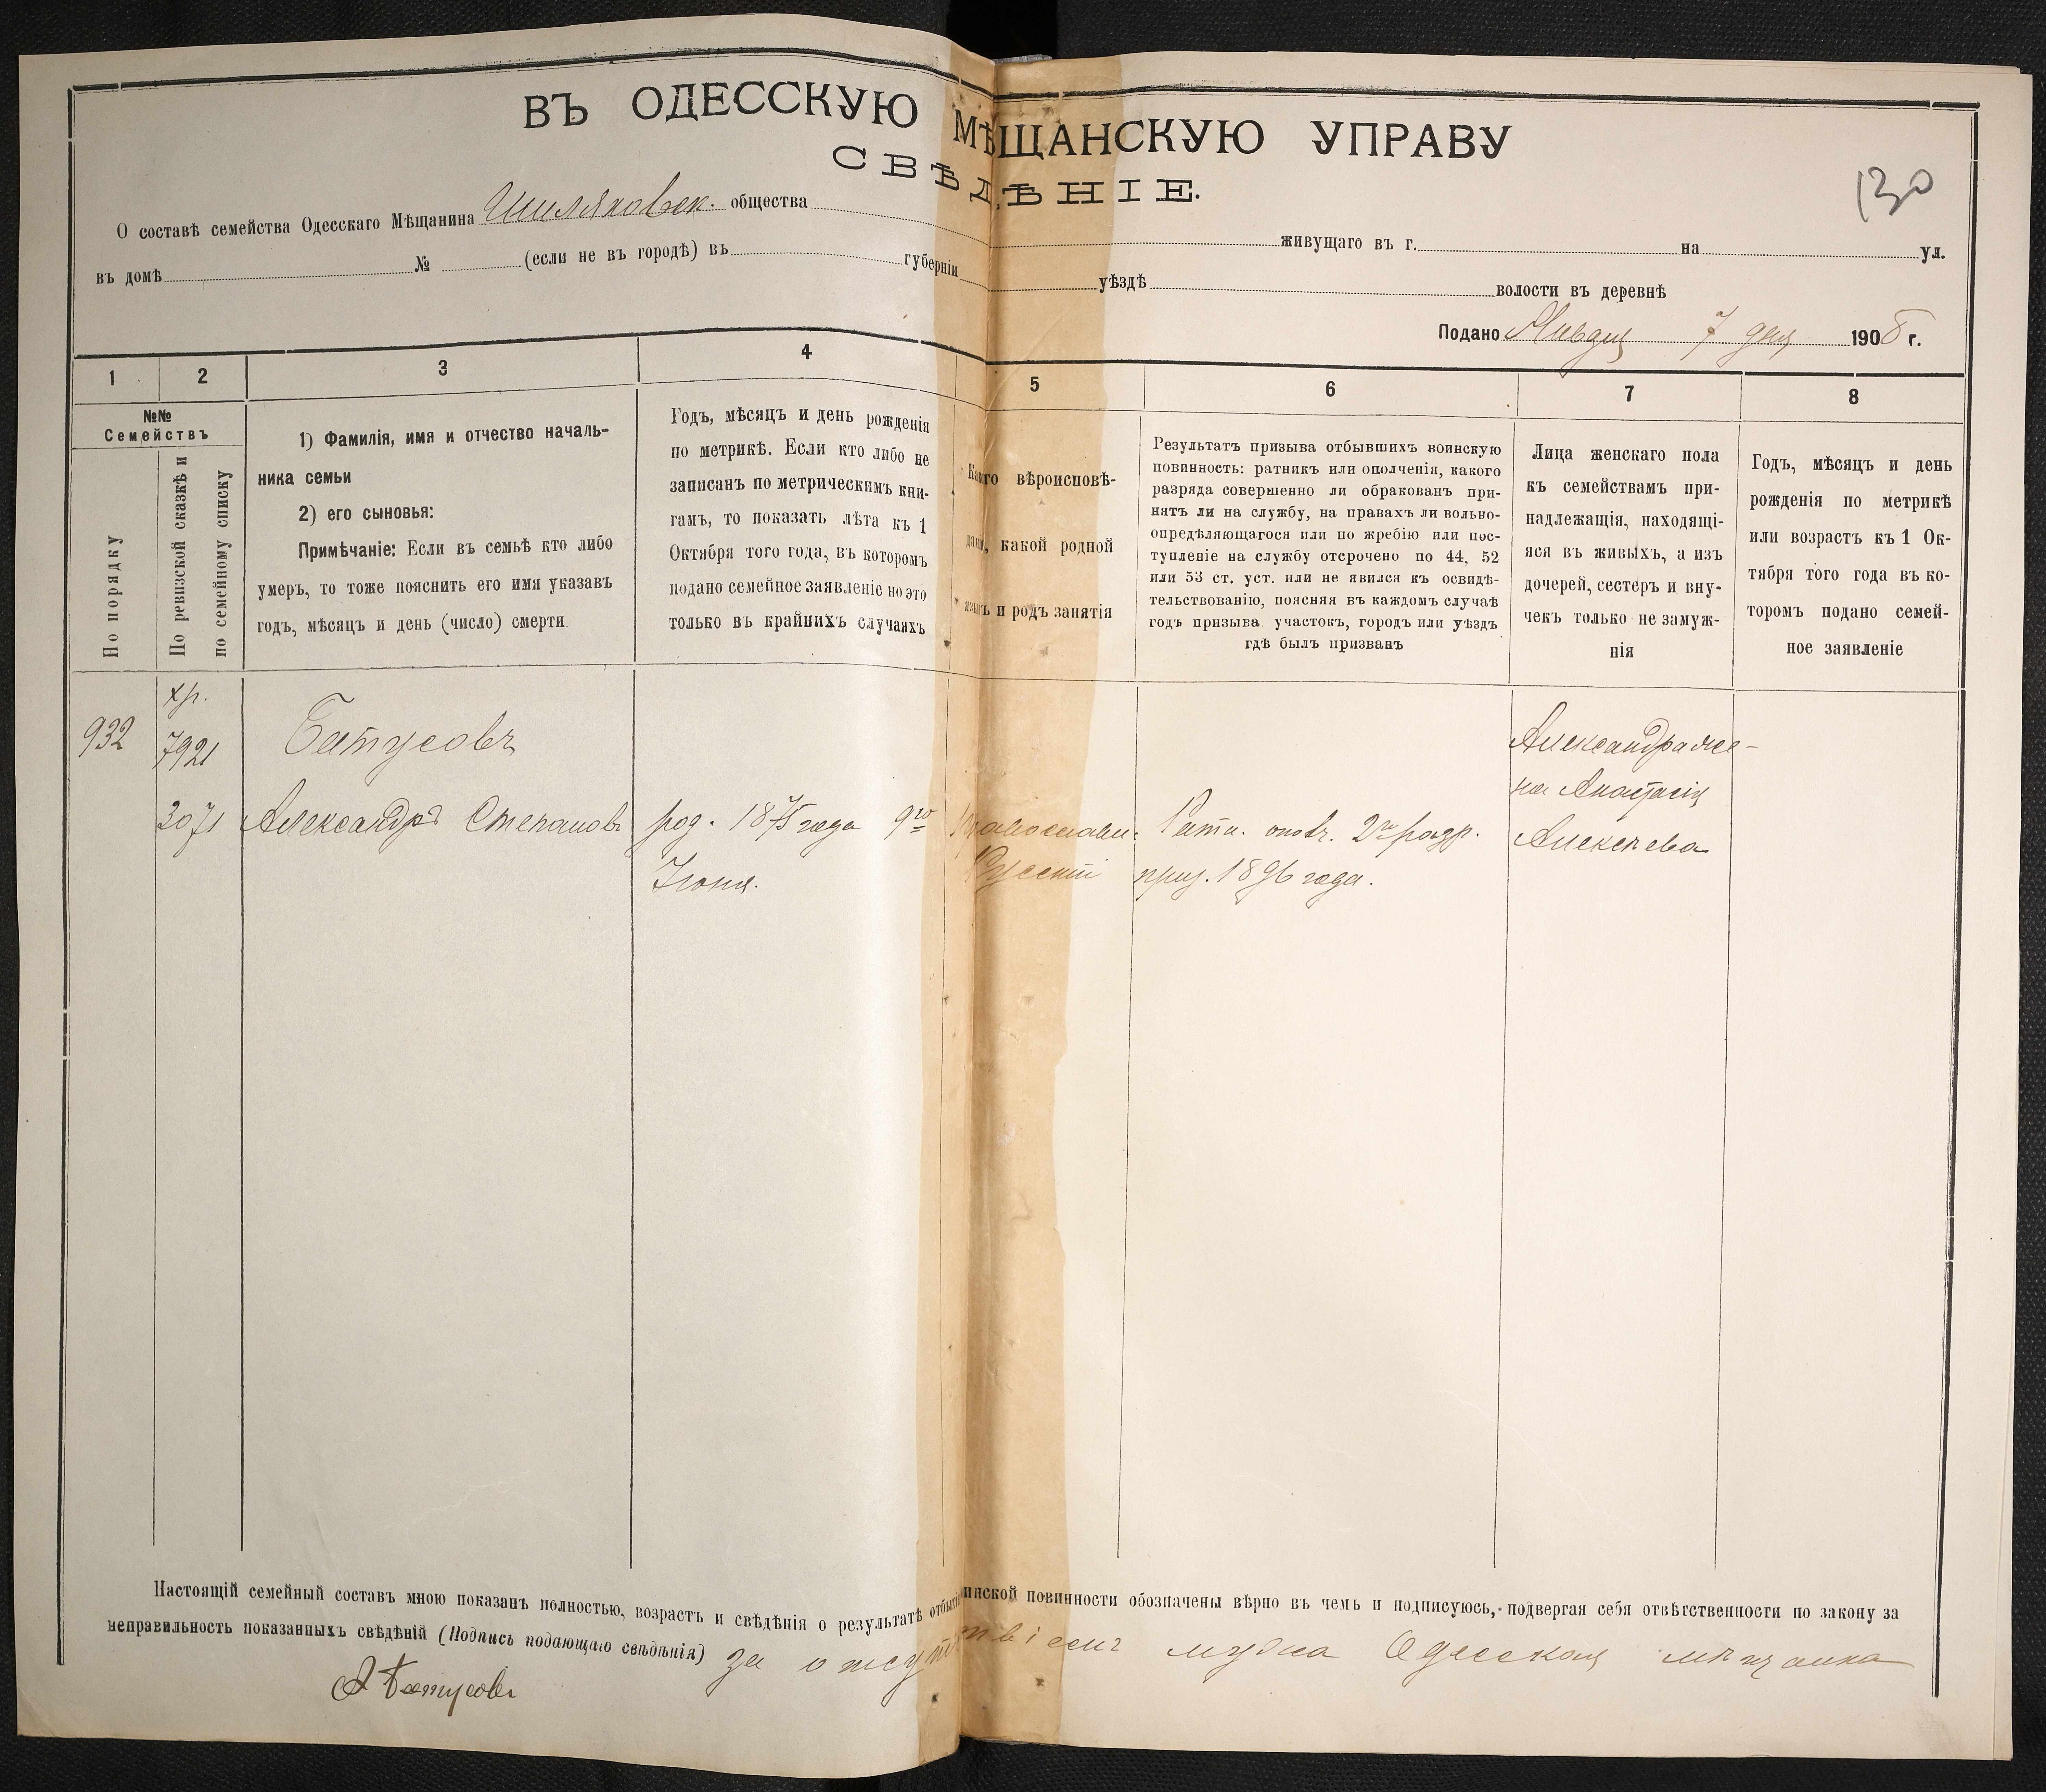 ВЪ ОДЕССКУЮ МѢЩАНСКУЮ УПРАВУ
СВѢДѢНІЕ.
130
О составѣ семейства Одесскаго Мѣщанина общества живущаго въ г. на ул.
въ домѣ № (если не въ городѣ) въ губерніи уѣздѣ волости въ деревнѣ
Подано 7 дня 1908 г.
1 2 3 4 5 6 7 8
№№
Семействъ
По порядку
По ревизской сказкѣ и
по семейному списку
1) Фамилія, имя и отчество началь-
ника семьи
2) его сыновья:
Примѣчаніе: Если въ семьѣ кто либо
умеръ, то тоже пояснить его имя указавъ
годъ, мѣсяцъ и день (число) смерти.
Годъ, мѣсяцъ и день рожденія
по метрикѣ. Если кто либо не
записанъ по метрическимъ кни-
гамъ, то показать лѣта къ 1
Октября того года, въ которомъ
подано семейное заявленіе но это
только въ крайнихъ случаяхъ
Какого вѣроисповѣ-
данія, какой родной
языкъ и родъ занятія
Результатъ призыва отбывшихъ воинскую
повинность: ратникъ или ополченія, какого
разряда совершенно ли обракованъ при-
нятъ ли на службу, на правахъ ли вольно-
опредѣляющагося или по жребію или пос-
тупленіе на службу отсрочено по 44, 52
или 53 ст. уст. или не явился къ освидѣ-
тельствованію, поясняя въ каждомъ случаѣ
годъ призыва. участокъ, городъ или уѣздъ
гдѣ былъ призванъ
Лица женскаго пола
къ семействамъ при-
надлежащія, находящі-
яся въ живыхъ, а изъ
дочерей, сестеръ и вну-
чекъ только не замуж-
нія
Годъ, мѣсяцъ и день
рожденія по метрикѣ
или возрастъ къ 1 Ок-
тября того года въ ко-
торомъ подано семей-
ное заявленіе
932
хр.
7921
3071
Батусовъ
Александръ Степановъ
род. 1875 года 9го
Іюня.
Православн.
Русскій
Ратн. ополч. 2го разр.
приз. 1896 года.
Александра же-
на Анастасія
Алексѣева
Настоящій семейный составъ мною показанъ полностью, возрастъ и свѣдѣнія о результатѣ отбытія воинской повинности обозначены вѣрно въ чемъ и подписуюсь, подвергая себя отвѣтственности по закону за
неправильность показанныхъ свѣдѣній (Подпись подающаго свѣдѣнія) за отсутствіемъ мужа Одесская мѣщанка
А Батусова